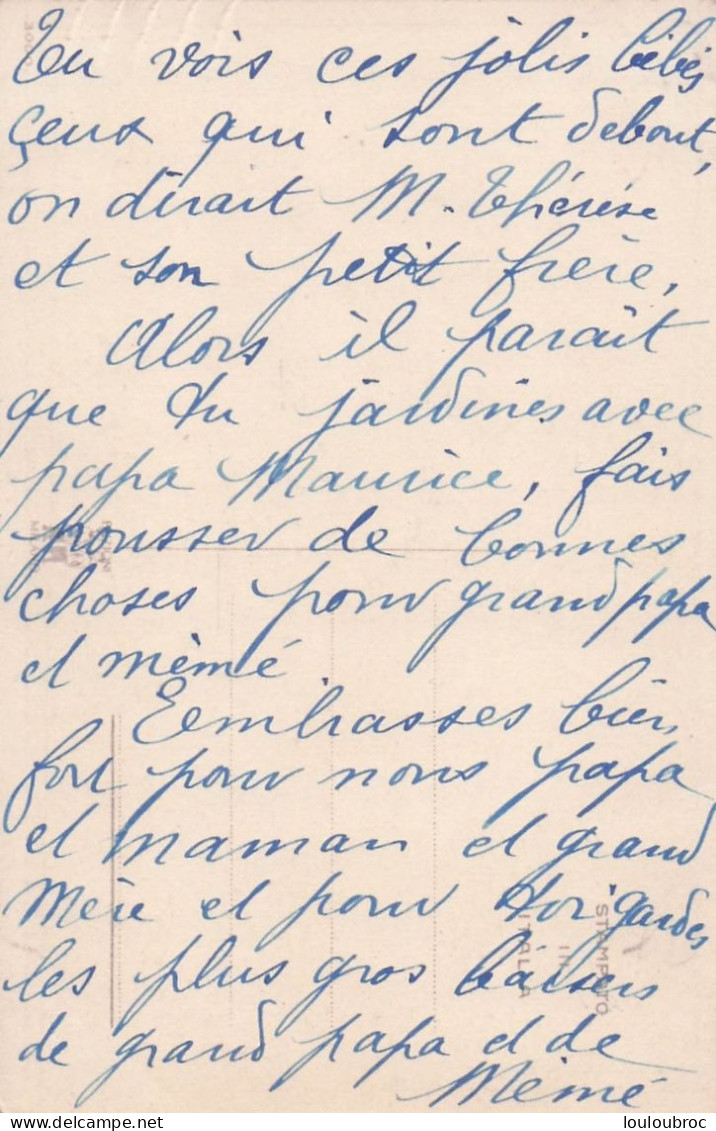 Tu vois ces jolis bébés
ceux qui sont debout,
on dirait M. Thérèse
et son petit frère,
Alors il parait
que tu jardines avec
papa Maurice, fais
pousser de bonnes
choses pour grand papa
et mèmé
Embrasses bien
fort pour nous papa
et maman et grand
Mère et pour toi gardes
les plus gros baisers
de grand papa et de
Mémé
STAMPATO
IN
ITALIA
delcampe.net
louloubroc